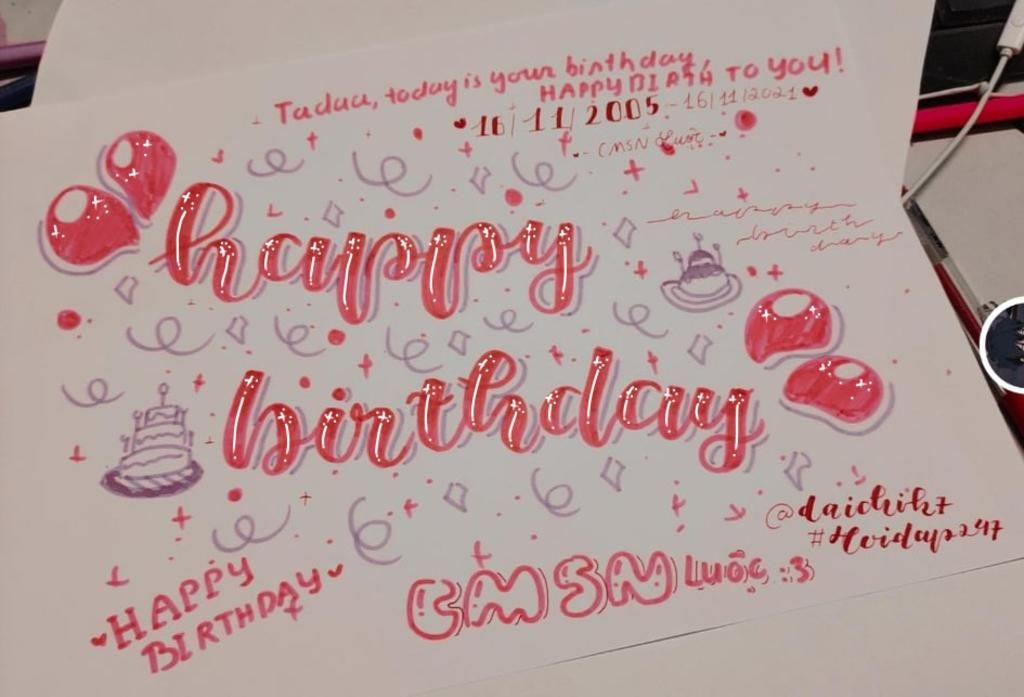 Tadaa, today is your birthday,
HAPPY BIRTH TO YOU!
16/11/2005 - 16/11/2021
- CMSN Luộc -
happy
happy
birth
day
birthday
@daichikt
#Hoidap247
HAPPY
BIRTHDAY
CMSN Luộc :3